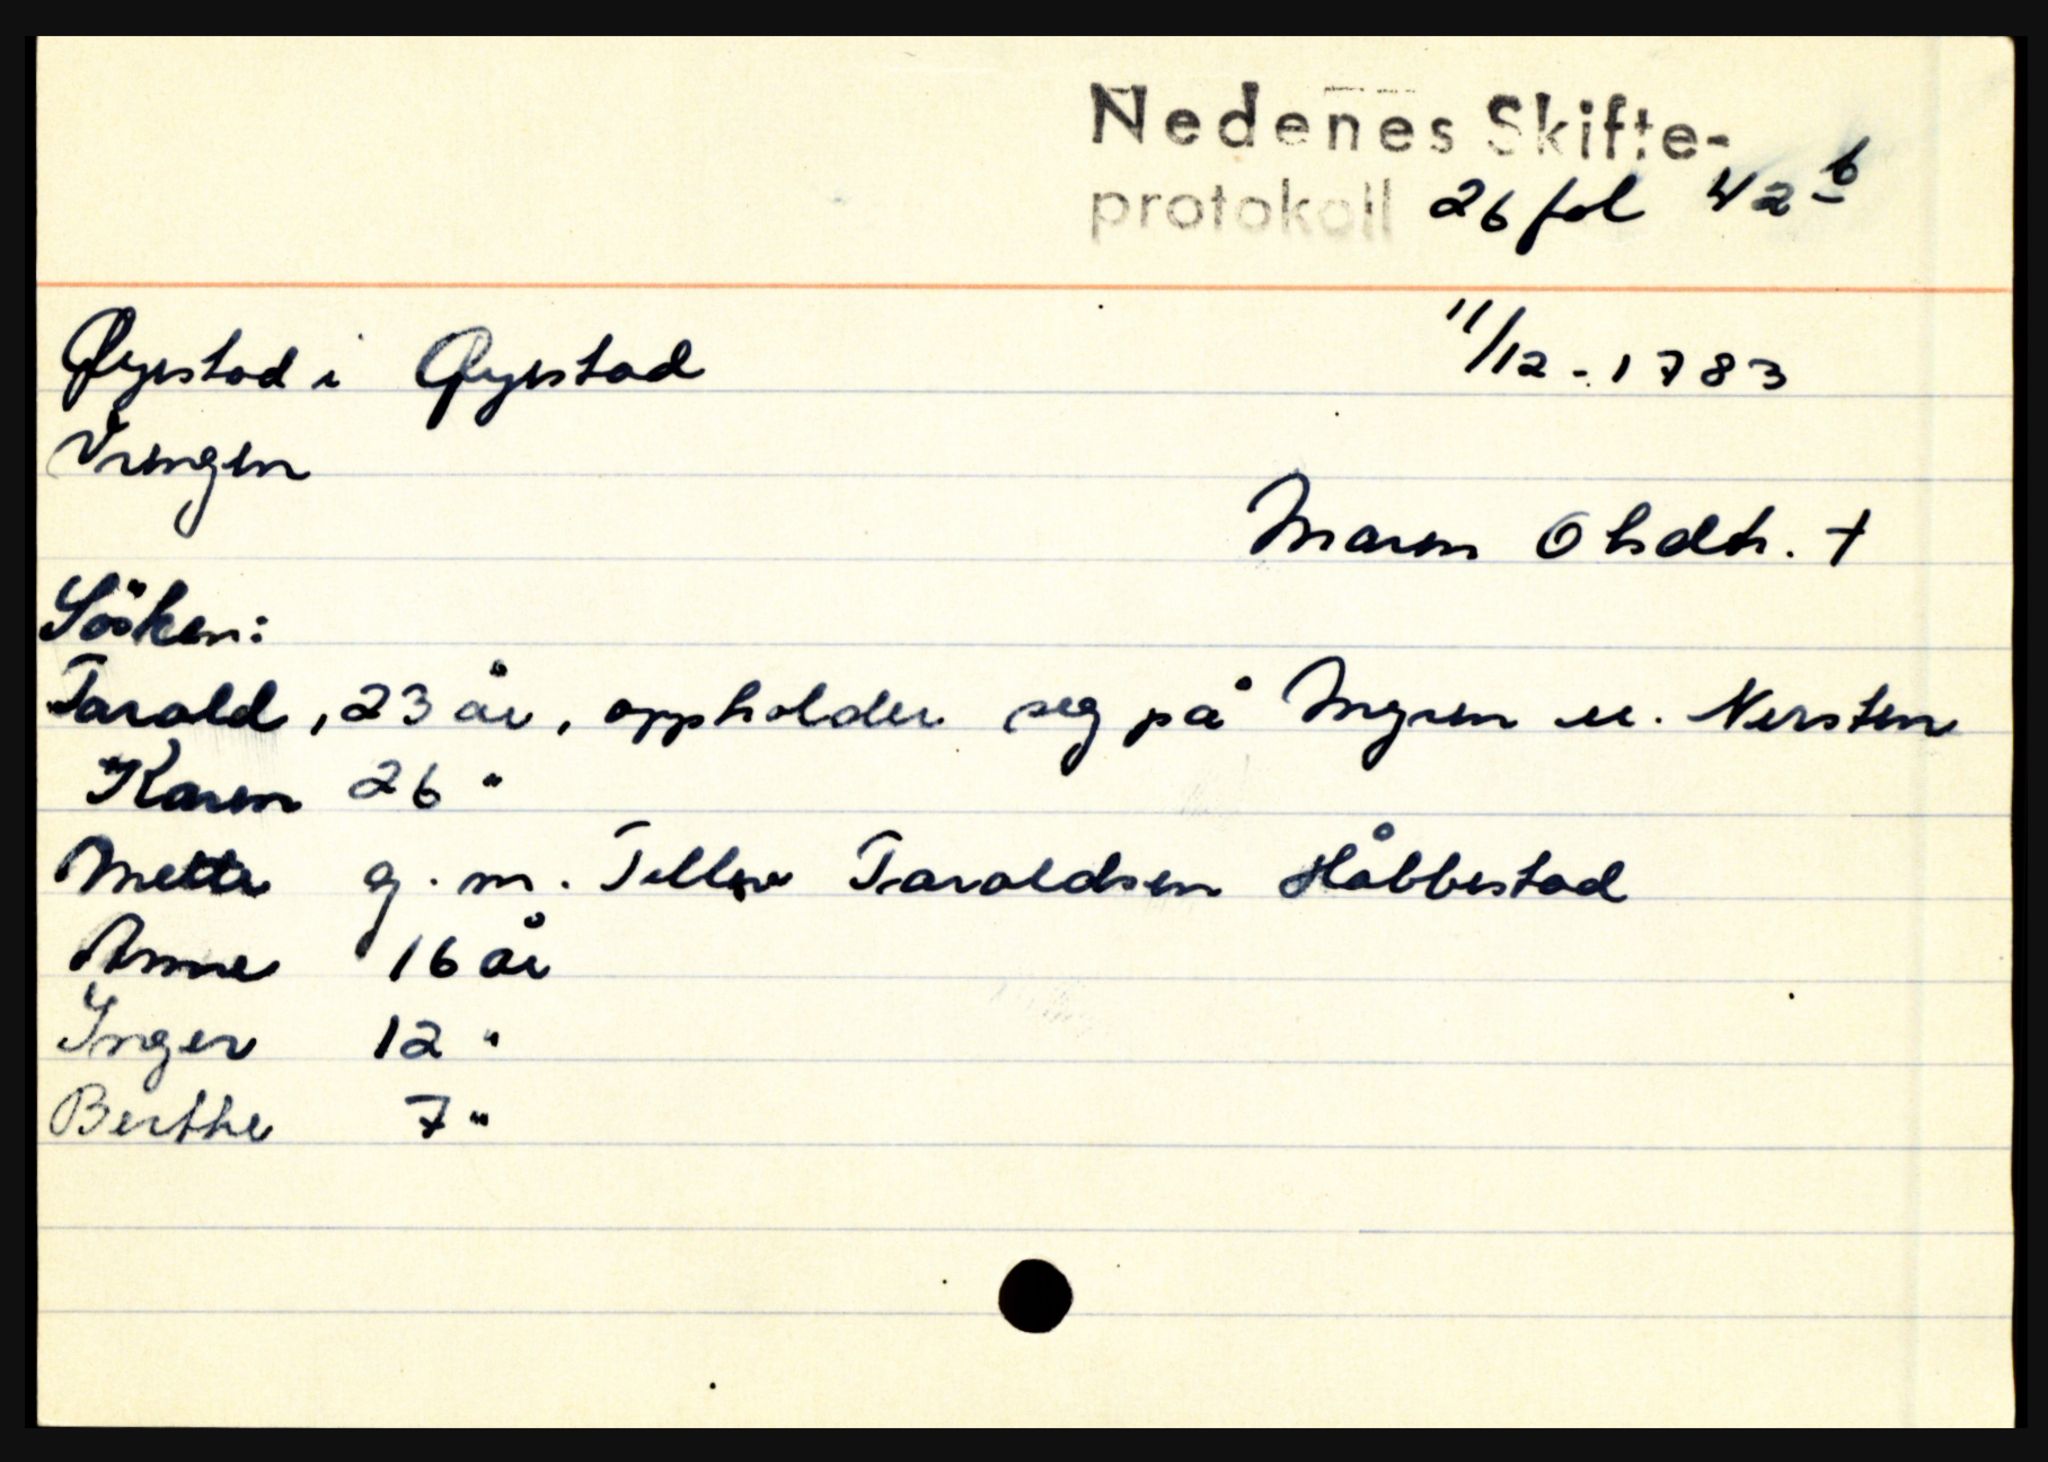 Nedenes Skifte-
protokoll 26 fol 42 b
Øyestad i Øyestad 11/12 - 1783
Vrengen
Maren Olsdtr. †
Söken:
Tarald, 23 år, oppholder seg på Myren u. Nersten
Karen 26 "
Mette g. m. Tellev Taraldsen Håbbestad
Anne 16 år
Inger 12 "
Berthe 7 "